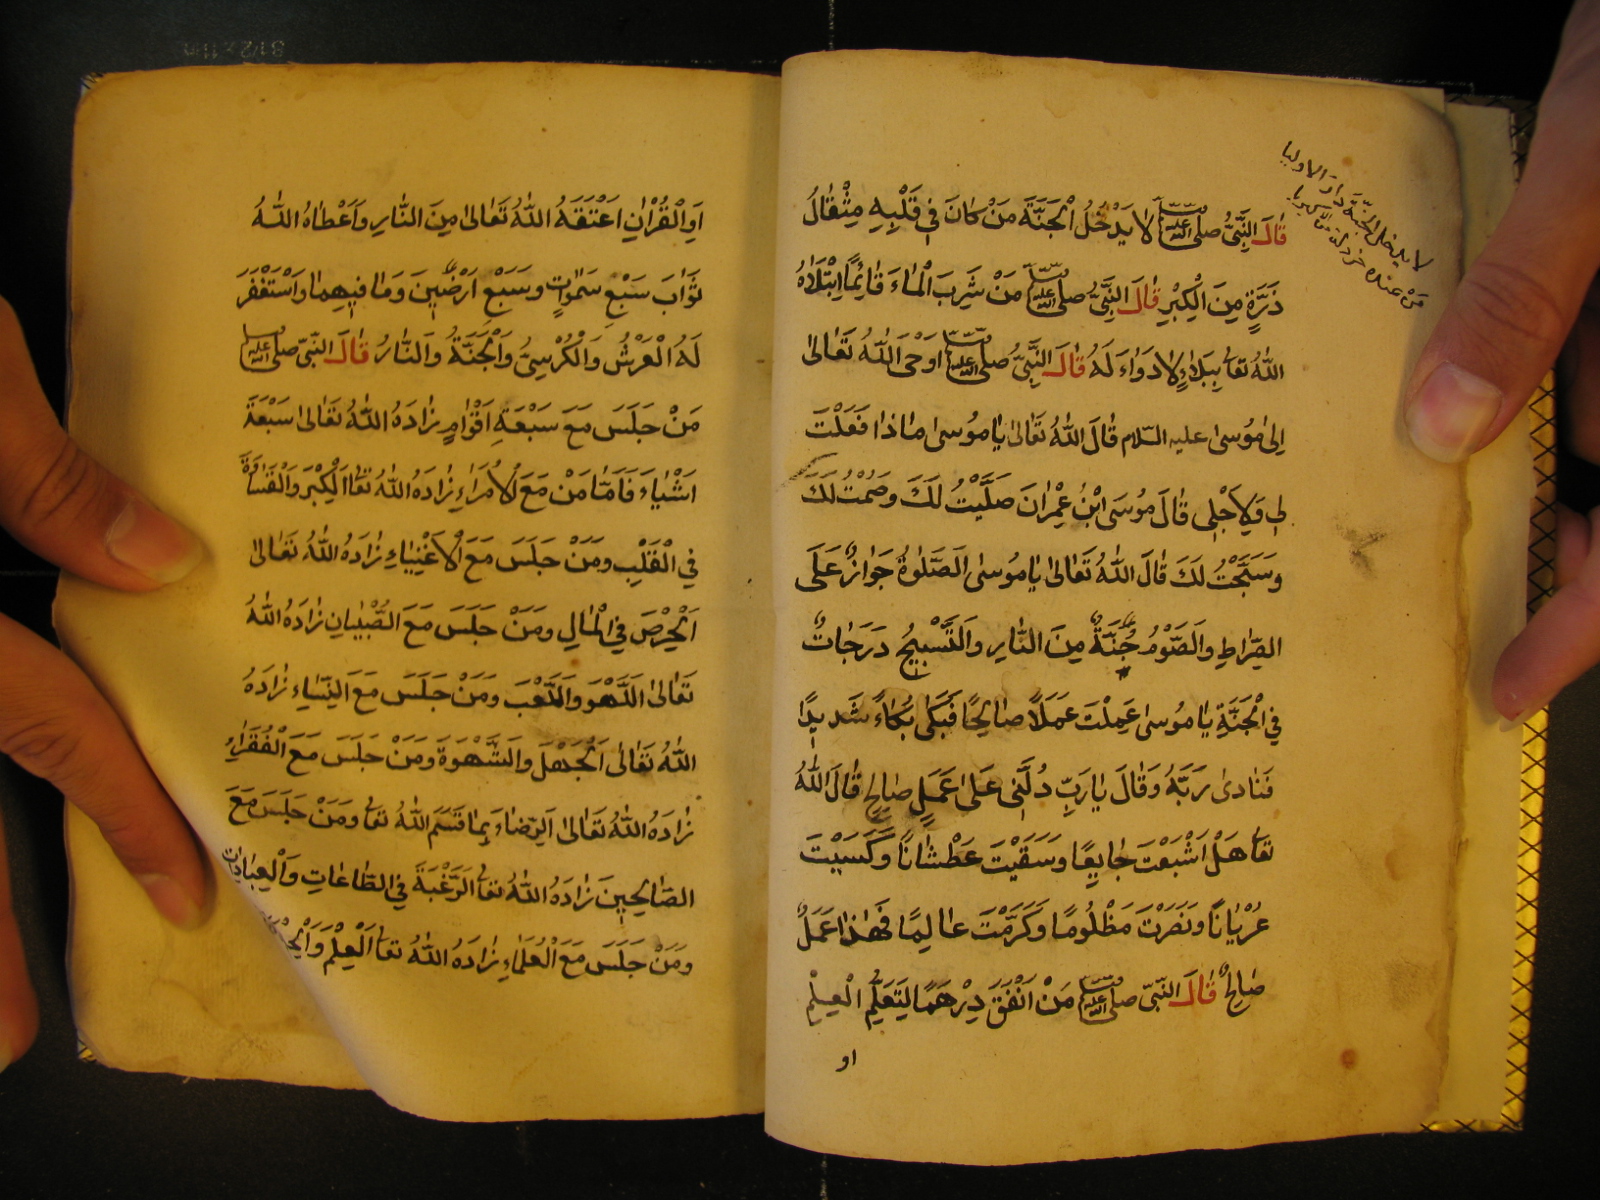 قَالَ النَّبِيُّ صلى الله عليه لَا يَدْخُلُ الْجَنَّةَ مَنْ كَانَ فِي قَلْبِهِ مِثْقَالُ
ذَرَّةٍ مِنَ الْكِبْرِ قَالَ النَّبِيُّ صلى الله عليه مَنْ شَرِبَ الْمَاءَ قَائِمًا ابْتَلَاهُ
اللهُ تعا بِبَلَاءٍ لَا دَوَاءَ لَهُ قَالَ النَّبِيُّ صلى الله عليه اَوْحَى اللهُ تَعَالَى
اِلَى مُوسَى عليه السلام قَالَ اللهُ تَعَالَى يَا مُوسَى مَاذَا فَعَلْتَ
لِي وَلِاَجْلِي قَالَ مُوسَى ابْنُ عِمْرَانَ صَلَّيْتُ لَكَ وَصُمْتُ لَكَ
وَسَبَّحْتُ لَكَ قَالَ اللهُ تَعَالَى يَا مُوسَى اَلصَّلٰوةُ جَوَازٌ عَلَى
الصِّرَاطِ وَالصَّوْمُ جُنَّةٌ مِنَ النَّارِ وَالتَّسْبِيحُ دَرَجَاتٌ
فِي الْجَنَّةِ يَا مُوسَى عَمِلْتَ عَمَلًا صَالِحًا فَبَكَى بُكَاءً شَدِيدًا
فَنَادَى رَبَّهُ وَقَالَ يَا رَبِّ دُلَّنِي عَلَى عَمَلٍ صَالِحٍ قَالَ اللهُ
تعا هَلْ اَشْبَعْتَ جَايِعًا وَسَقَيْتَ عَطْشَانًا وَكَسَيْتَ
عُرْيَانًا وَنَصَرْتَ مَظْلُومًا وَكَرَّمْتَ عَالِمًا فَهٰذَا عَمَلٌ
صَالِحٌ قَالَ النَّبِيّ صلى الله عليه مَنْ اَنْفَقَ دِرْهَمًا لِتَعَلُّمِ الْعِلْمِ
او
لا يدخل الجنة دار الاوليا
من عنده خردلة من كبريا
اَوِ الْقُرْاٰنِ اَعْتَقَهُ اللهُ تَعَالَى مِنَ النَّارِ وَاَعْطَاهُ اللهُ
ثَوَابَ سَبْعِ سَمٰوَاتٍ وَسَبْعِ اَرَضِينَ وَمَا فِيهِمَا وَاسْتَغْفَرَ
لَهُ الْعَرْشُ وَالْكُرْسِيُّ وَالْجَنَّةُ وَالنَّارُ قَالَ النَّبِيّ صلى الله عليه
مَنْ جَلَسَ مَعَ سَبْعَةِ اَقْوَامٍ زَادَهُ اللهُ تَعَالَى سَبْعَةَ
اَشْيَاءَ فَاَمَّا مَنْ مَعَ الْاُمَرَاءِ زَادَهُ اللهُ تعا الْكِبْرَ وَالْقَسَاوَةَ
فِي الْقَلْبِ وَمَنْ جَلَسَ مَعَ الْاَغْنِيَاءِ زَادَهُ اللهُ تَعَالَى
اَلْحِرْصَ فِي الْمَالِ وَمَنْ جَلَسَ مَعَ الصِّبْيَانِ زَادَهُ اللهُ
تَعَالَى اَللَّهْوَ وَاللَّعْبَ وَمَنْ جَلَسَ مَعَ النِّسَاءِ زَادَهُ
اللهُ تَعَالَى اَلْجَهْلَ وَالشَّهْوَةَ وَمَنْ جَلَسَ مَعَ الْفُقَرَاءِ
زَادَهُ اللهُ تَعَالَى اَلرِّضَاءَ بِمَا قَسَمَ اللهُ تعا وَمَنْ جَلَسَ مَعَ
الصَّالِحِينَ زَادَهُ اللهُ تعا الرَّغْبَةَ فِي الطَّاعَاتِ وَالْعِبَادَاتِ
وَمَنْ جَلَسَ مَعَ الْعُلَمَاءِ زَادَهُ اللهُ تعا الْعِلْمَ